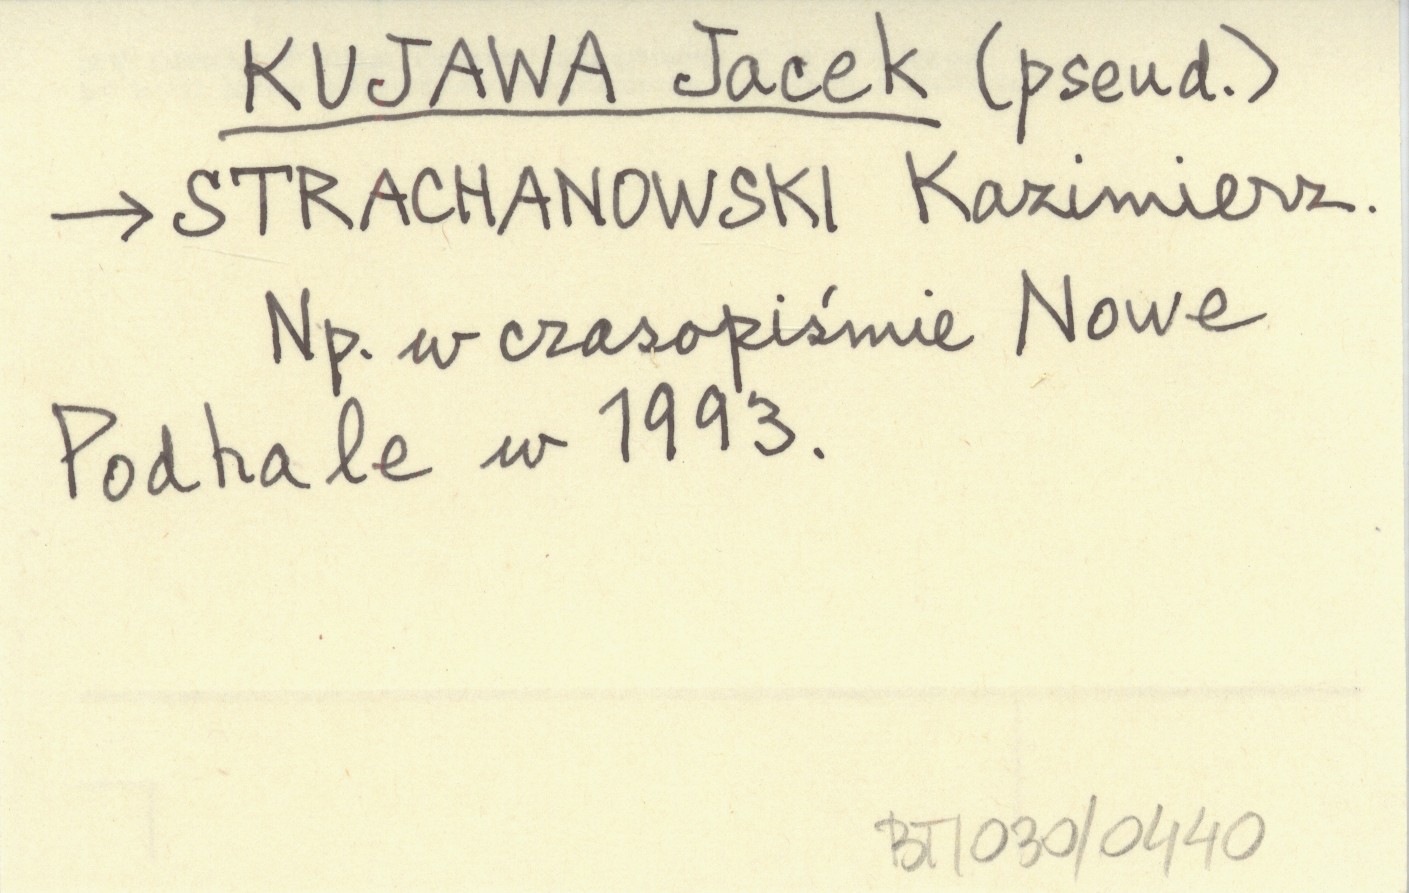 KUJAWA Jacek (pseud.)
→ STRACHANOWSKI Kazimierz.
Np. w czasopiśmie Nowe
Podhale w 1993.
BT/030/0440